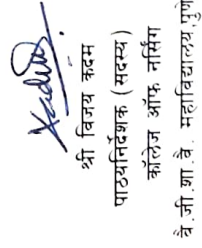 श्री विजय कदम
पाठयनिर्देशक ( सदस्य )
कॉलेज ऑफ नर्सिंग
बै.जी.शा.वै. महाविद्यालय,पुणे